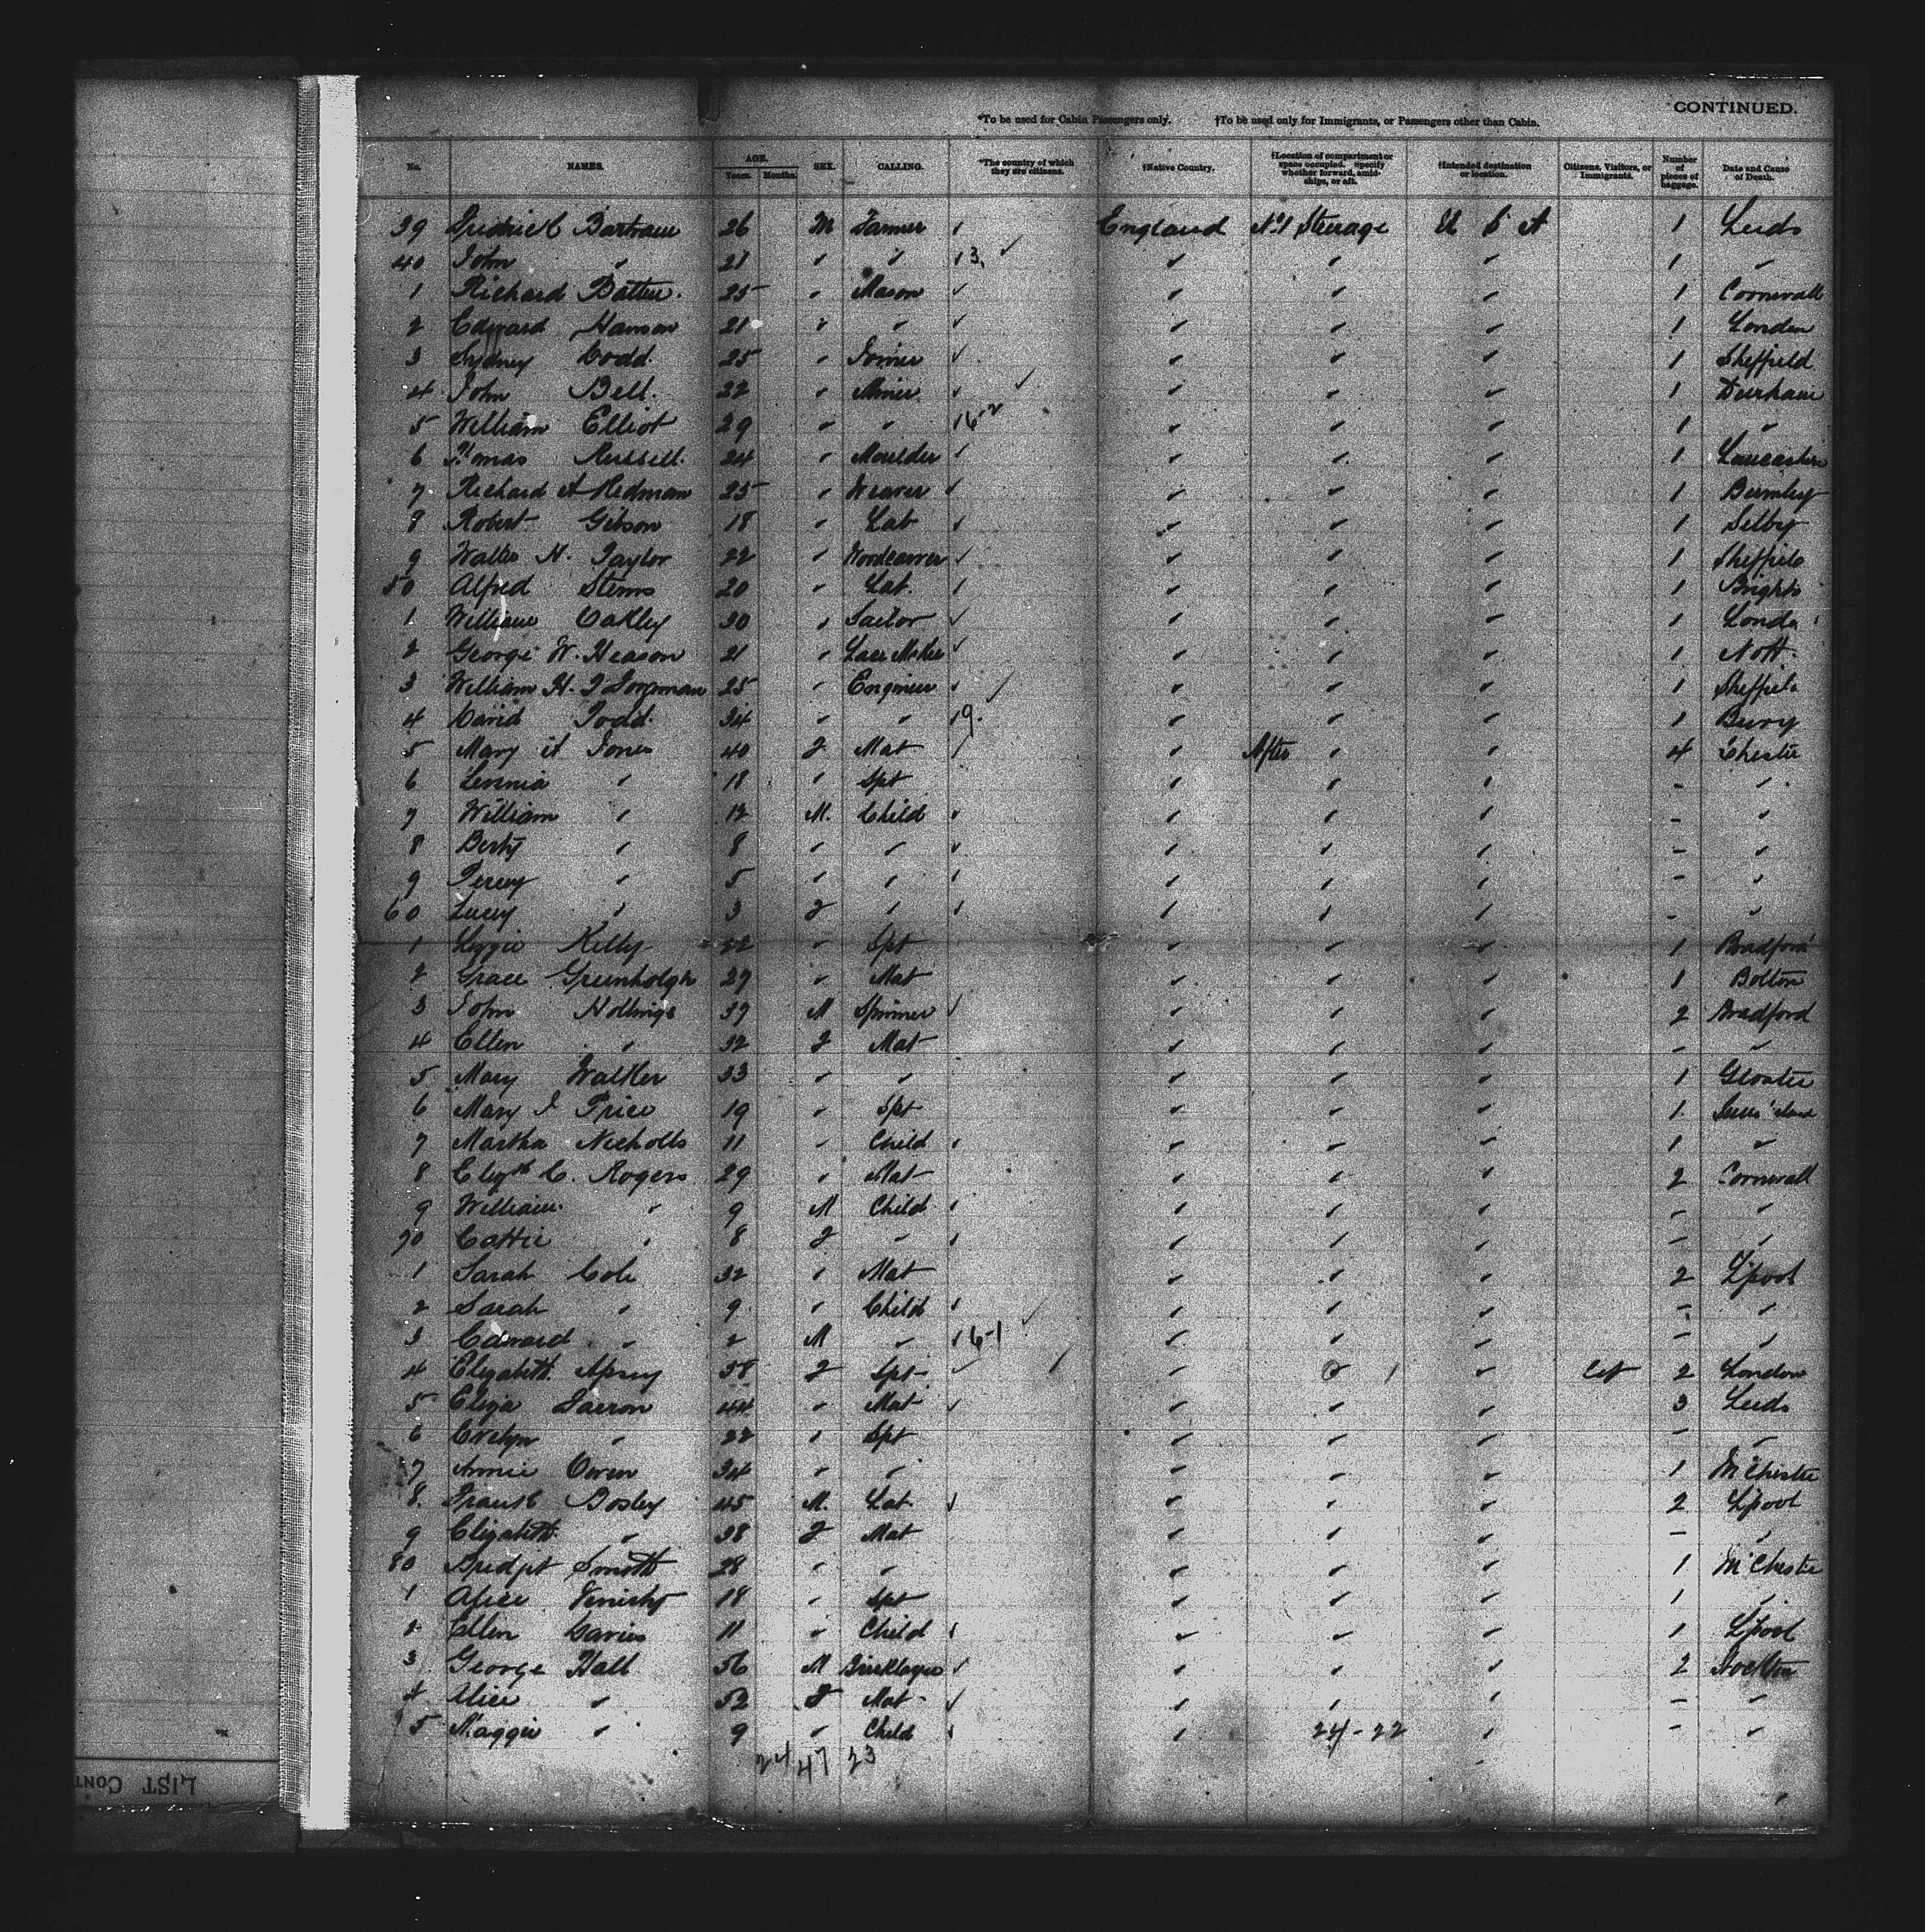 CONTINUED.
*To be used for Cabin Passengers only. †To be used only for Immigrants, or Passengers other than Cabin.
No. NAMES. AGE. Years. Months. SEX. CALLING. *The country of which they are citizens. †Native Country. †Location of compartment or space occupied. Specify whether forward, amidships, or aft. †Intended destination or location. Citizens, Visitors, or Immigrants. Number of pieces of baggage. Date and Cause of Death.
39 Fredrick Bartram 26 M Farmer England No 1 Steerage U S A 1 Leeds
40 John " 21 " " 13. " " " 1 "
1 Richard Batten. 25 " Mason " " " 1 Cornwall
2 Edward Hanson 21 " " " " " 1 London
3 Sydney Codd 25 " Joiner " " " 1 Sheffield
4 John Bell. 22 " Miner " " " 1 Durham
5 William Elliot 29 " " 16-2 " " " 1 "
6 Thomas Russell. 24 " Moulder " " " 1 Lancashire
7 Richard A Redman 25 " Weaver " " " 1 Burnley
8 Robert Gibson 18 " Lab " " " 1 Selby
9 Walter H. Taylor 22 " Woodcarver " " " 1 Sheffield
50 Alfred 20 " Lab. " " " 1 Bright
1 William Oakley 30 " Sailor " " " 1 Londo
2 George W. Heason 21 " Lace Maker " " " 1 Nott.
3 William H. 25 " Engineer " " " 1 Sheffiel
4 David Todd. 34 " " 19. " " " 1 Bury
5 Mary A Jones 40 F Mat " After " " 4 Chester
6 " 18 " Spt " " " - "
7 William " 12 M. Child " " " - "
8 Berty " 8 " " " " " - "
9 Percy " 5 " " " " " - "
60 Lucy " 3 F " " " " - "
1 Lizzie Kelly 22 " Spt " " " 1 Bradford
2 Grace Greenholgh 29 " Mat " " " 1 Bolton
3 John Hollings 37 M Spinner " " " 2 Bradford
4 Ellen " 32 F Mat " " " - "
5 Mary Walker 33 " " " " " 1 Gloster
6 Mary J Price 19 " Spt " " " 1
7 Martha Nicholls 11 " Child " " " 1 "
8 Elizth C. Rogers 29 " Mat " " " 2 Cornwall
9 William " 9 M Child " " " - "
70 Cattie " 8 F " " " " - "
1 Sarah Cole 32 " Mat " " " 2 L'pool
2 Sarah " 9 " Child " " " - "
3 Edward " 2 M " 16-1 " " " - "
4 Elizabeth 38 F Spt " " " Cit 2 London
5 Eliza Farron 44 " Mat " " " 3 Leeds
6 Evelyn " 22 " Spt " " " - "
7 Annie Owen 34 " " " " " 1 M'Chester
8. Frank Bosley 45 M. Lab " " " 2 L'pool
9 Elizabeth " 38 F Mat " " " - "
80 Smith 28 " " " " " 1 M'Chester
1 Alice 18 " Spt " " " 1 "
2 Ellen Davies 11 " Child " " " 1 L'pool
3 George Hall 56 M Bricklayer " " " 2 Stockton
4 Alice " 52 F Mat " " " - "
5 Maggie " 9 " Child " 24-22 " - "
24 47 23
LIST CONT